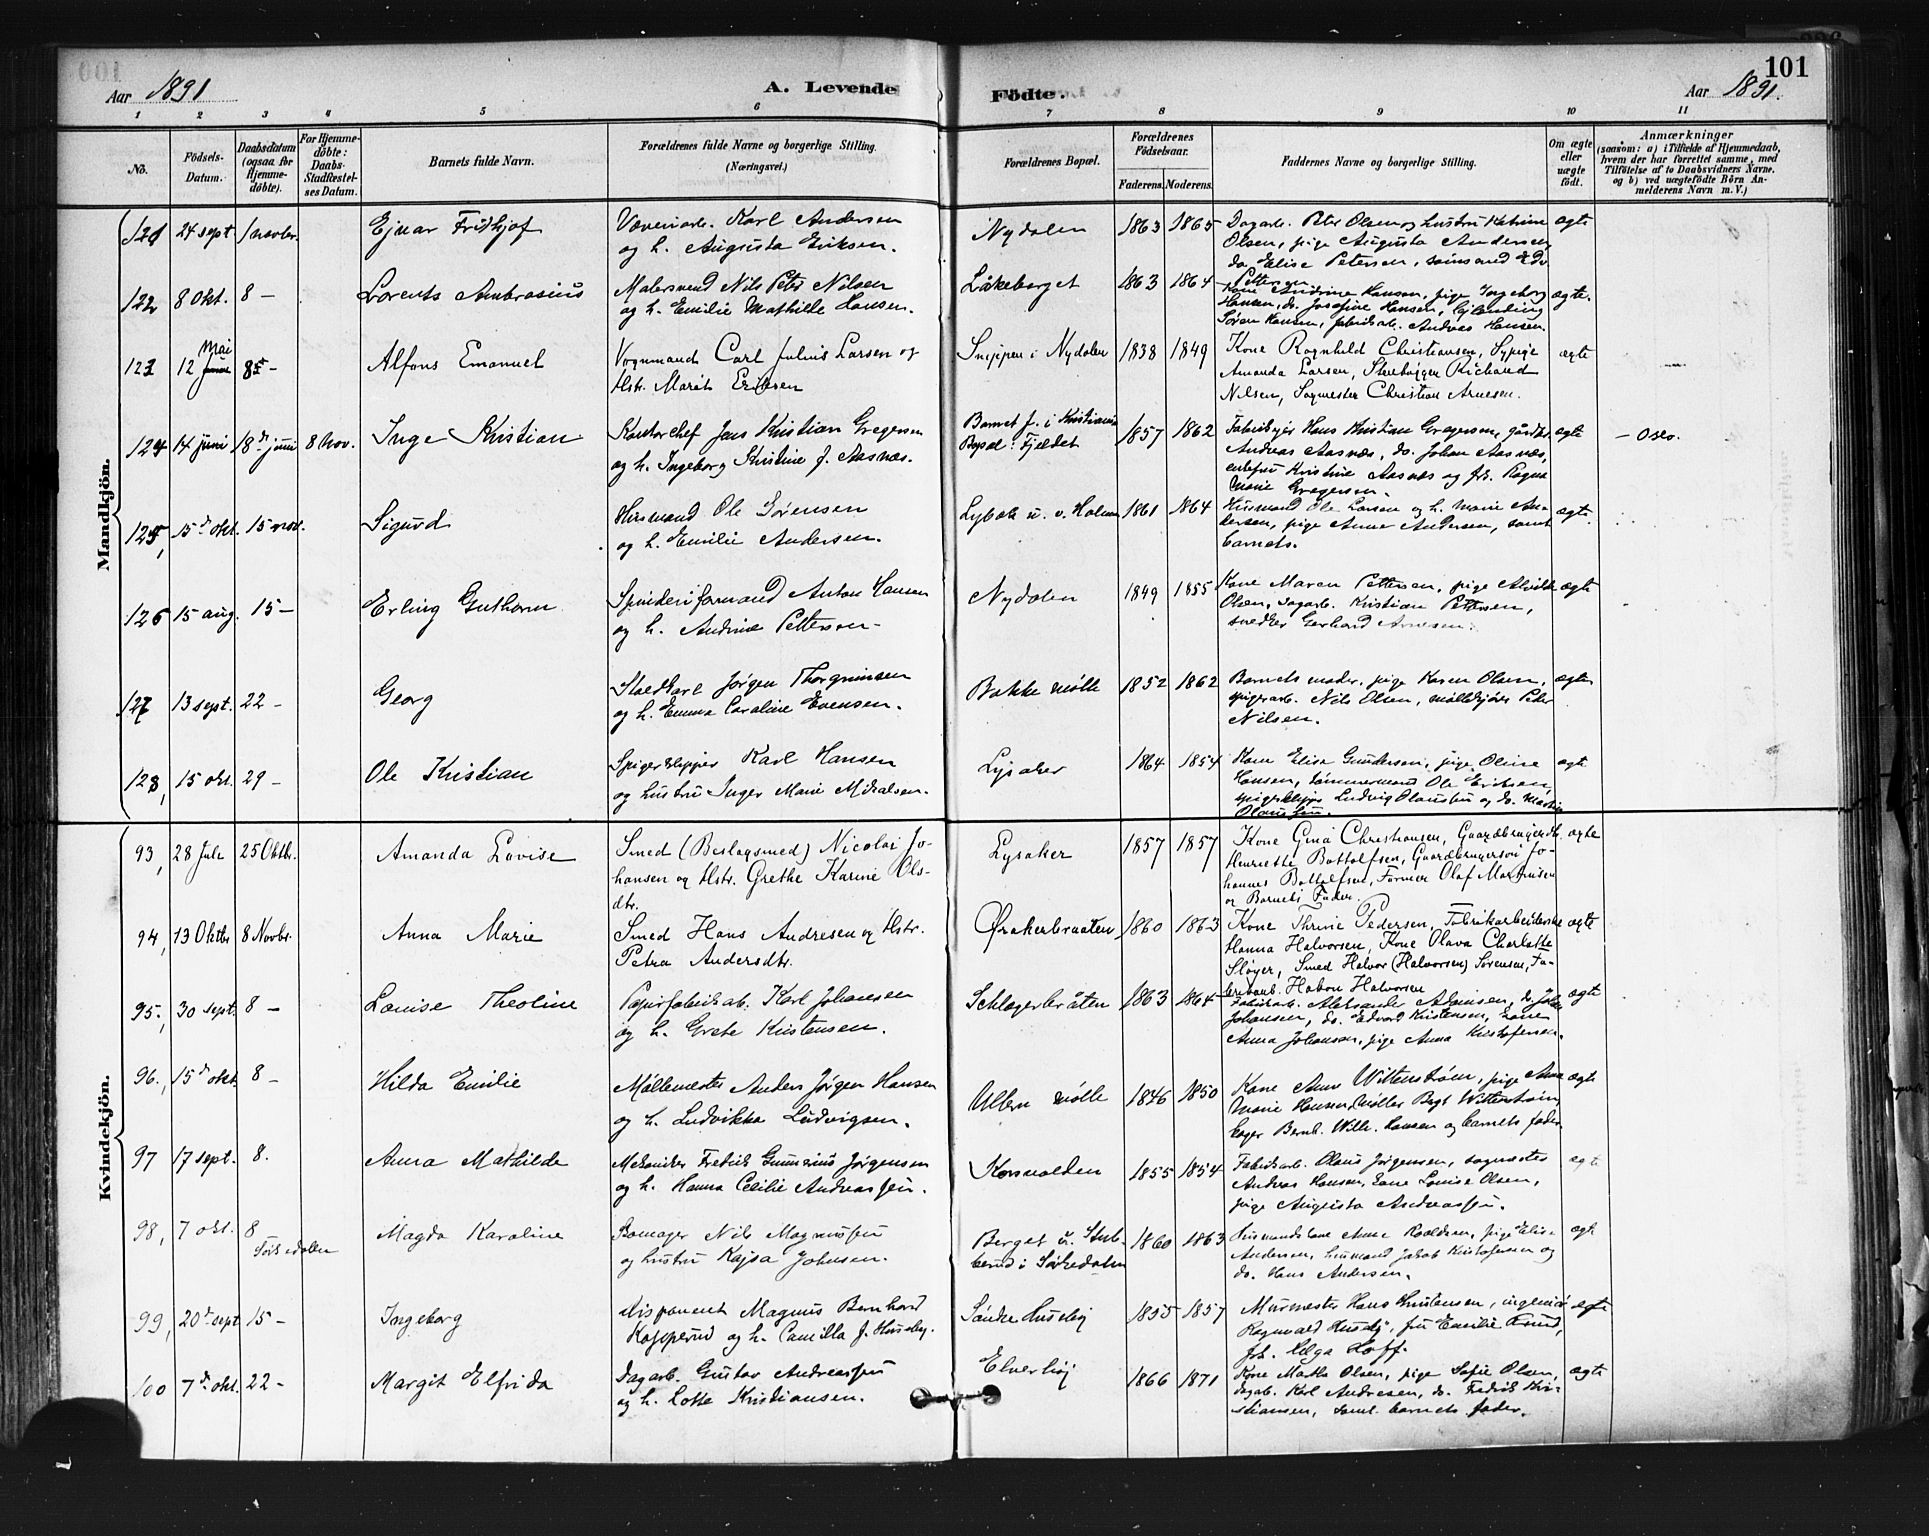 101
Aar 1891
A. Levende
Födte.
Aar 1891.
1 2 3 4 5 6 7 8 9 10 11
No.
Födsels-
Datum.
Daabsdatum
(ogsaa for
Hjemme-
döbte).
For Hjemme-
döbte:
Daabs-
Stadfæstel-
ses Datum.
Barnets fulde Navn.
Forældrenes fulde Navne og borgerlige Stilling.
(Næringsvei.)
Forældrenes Bopæl.
Forældrenes
Födselsaar.
Faderens. Moderens.
Faddernes Navne og borgerlige Stilling.
Om ægte
eller
uægte
födt.
Anmærkninger
(saasom: a) i Tilfælde af Hjemmedaab,
hvem der har forrettet samme, med
Tilföielse af to Daabsvidners Navne.
og b) ved uægtefödte Börn An-
melderens Navn m. V.)
Mandkjön.
121 24 sept 1 novbr. Ejnar Fridhjof
Væveriarb. Karl Andersen
og h. Augusta Eriksen.
Nydalen 1863 1865
Dagarb. Peter Olsen og hustru Katrine
Olsen, pige Augusta Andersen,
do. Elise Petersen, svensend Edv.
Pettersen
ægte
122 8 Okt. 8 - Lorents Ambrosius
Malersvend Nils Peter Nilsen
og h. Emilie Mathilde Hansen.
Låkeberget 1863 1864
Kone Andrine Hansen, pige Ingeborg
Hansen, do. Josefine Hansen,
Søren Hansen, fabrikarb. Andreas Hansen.
ægte.
123 12 Mai 8de - Alfons Emanuel
Vognmand Carl Julius Larsen og
Hstr. Marit Eriksen
Snippen i Nydalen 1838 1849
Kone Ragnhild Christiansen, Sypige
Amanda Larsen, Stenhugger Richard
Nilsen, Sagmester Christian Arnesen.
ægte
124 14 juni 18de juni 8 Nov. Inge Kristian
Kontorchef Jens Kristian Gregersen
og h. Ingeborg Kristine f. Aasnæs.
Barnet f. i Kristiania
Bopæl: Fjeldet 1857 1862
Fabrikejer Hans Kristian Gregersen, gårdbr.
Andreas Aasnæs, do. Johan Aasnæs,
enkefru Kristine Aasnæs og frk. Ragna
Marie Gregersen.
ægte
- Oslo.
125, 15de okt. 15 nov. Sigurd
Husmand Ole Sørensen
og h. Emilie Andersen.
Lybæk u. v. Holmen 1861 1864
Husmand Ole Larsen og h. Marie An-
dersen, pige Anna Andersen, samt
barnets.
ægte.
126 15 aug. 15 - Erling Guthorm
Spinderiformand Anton Hansen
og h. Andrine Pettersen -
Nydalen 1849 1855
Kone Maren Pettersen, pige Alvilde
Olsen, Dagarb. Kristian Pettersen,
snedker Gerhard Arnesen.
ægte
127 13 sept. 22 - Georg
Staldkarl Jørgen Thorgrimsen
og h. Emma Caroline Evensen.
Bakke mølle 1852 1862
Barnets moder, pige Karen Olsen,
spigerarb. Nils Olsen, møllekjører Peder
Nilsen.
ægte
128, 15 okt. 29 - Ole Kristian
Spigerklipper Karl Hansen
og hustru Inger Marie Mikalsen.
Lysaker 1864 1854
Kone Elise Gundersen, pige Oline
Hansen, tømmermand Ole Eriksen,
spigerklipper Ludvig Olaussen og do. Martin
Olaussen.
ægte
Kvindekjön.
93, 28 Jule 25 Oktbr. Amanda Lovise
Smed (Beslagsmed) Nicolai Jo-
hansen og Hstr. Grethe Karine Ols-
dtr.
Lysaker 1857 1857
Kone Gina Christiansen, Gaardbrugerdtr.
Henriette Bottolfsen, Gaardbrugersøn Jo-
hannes Bottolfsen, Former Olaf Martinsen
og Barnets Fader.
ægte
94, 13 Oktbr 8 Novbr. Anna Marie
Smed Hans Andresen og Hstr.
Petra Andersdtr.
Ørakerbraaten 1860 1863
Kone Thrine Pedersen, Fabrikarbeiderske
Hanna Halvorsen, Kone Olava Charlotte
Sløyer, Smed Halvor (Halvorsen) Sørensen, Fa-
brikarb. Hakon Halvorsen
ægte
95, 30 sept. 8 - Louise Theoline
Papirfabrikarb. Karl Johansen
og h. Grete Kristensen.
Schlagerbråten 1863 1864
Fabrikarb. Aleksander Adamsen, do. Johan
Johansen, do. Edvard Kristensen, kone
Anna Johansen, pige Anna Kristofersen.
ægte
96., 15de okt 8 - Hilda Emilie
Møllemester Anders Jørgen Hansen
og h. Ludvikka Ludvigsen.
Ullern mølle 1846 1850
Kone Anne Wittenstrøm, pige Anna
Marie Hansen, Møller Bngt Wittenstrøm,
bager Bernh. Wilh. Hansen og barnets fader.
ægte
97 17 sept. 8. Anna Mathilde
Mekaniker Fredrik Gunerius Jørgensen
og h. Hanna Cecilie Andreassen.
Korsvolden 1855 1854
Fabrikarb. Olaus Jørgensen, sagmester
Andreas Hansen, kone Louise Olsen,
pige Augusta Andreassen.
ægte
98, 7 okt. 8 - Sørkedalen Magda Karoline
Nils Magnussen
og hustru Kajsa Johnsen.
Berget u. Stub-
berud i Sørkedalen 1860 1863
Husmandskone Anne Roaldsen, pige Elise
Andersen, husmand Jakob Kristofersen og
do. Hans Andersen.
ægt
99, 20de sept 15 - Ingeborg
Disponent Magnus Bernhard
Kopperud og h. Camilla f. Huseby.
Søndre Huseby 1855 1857
Murmester Hans Kristensen, ingeniør
Ragnvald Huseby, fru Emilie Knud,
frk. Helga Hoff.
egte
100 7de okt. 22 - Margit Elfrida
Dagarb. Gustav Andreassen
og h. Lotte Kristiansen.
Elverhøj 1866 1871
Kone Martha Olsen, pige Sofie Olsen,
dagarb. Karl Andresen, do. Fredrik Kri-
stiansen, samt barnets fader.
ægte